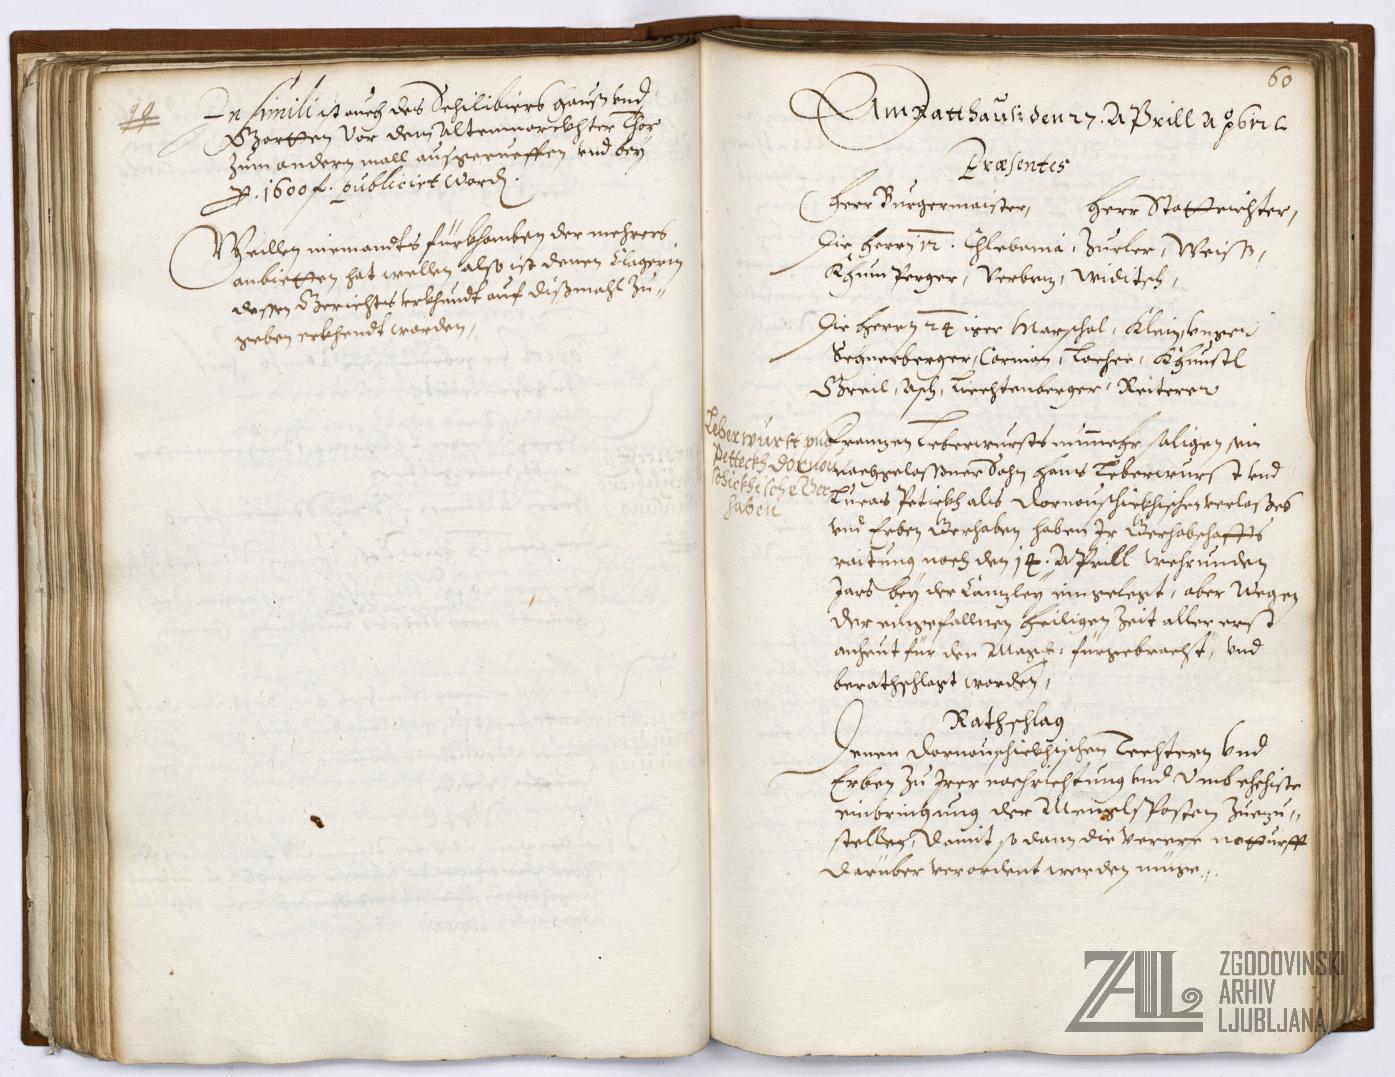 In simili ist auch des Schilibiers hauß vnd
Gartten vor dem altenmarckhter Thor
zum andern mall ausgerueffen vnd bey
p. 1600 f. publicirt word.
Weillen niemandts fürkhomben der mehrers
anbietten hat wellen, also ist denen Clagern
dessen Gerichts vrkhundt auf dißmahl zu
geben erkhendt worden,
60
Am Ratthauß den 27. Aprill Ao 1612
Præsentes
Herr Burgermaister, Herr Stattrichter,
Die Herrn 12. Chlebaina, Zurler, Weiß,
Khumperger, Verbez, Widitsch,
Die Herrn 24 iger Marschal, Klein,
Schnerberger, Cornion, Locher, Khunstl
Greil, Asch, Liechtenberger, Reiterer
Leberwurst vnd
Petteckh dornou
schickhische Ger
haben
Frantzen Leberwursts nunmehr saligen sein
nachgelaßner Sohn Hans Leberwurst vnd
Lucas Petickh als Dornouschickhischen verlaßes
vnd Erben Gerhaben haben Ir Gerhabschaffts
raitung noch den 14. Aprill wehrunden
Jars bey der Canzley eingelegt, aber wegen
der eingefallnen heiligen Zeit aller erst
anheut für den Mag: fürgebracht, vnd
berathschlagt worden,
Rathschlag
Denen Dornouschickhischen Tochtern vnd
Erben zu Irer nachrichtung vnd vmb ehehiste
einbringung der Mengelsposten zuezu
stellen, damit so dann die verere notturfft
darüber verordent werden müge.
ZAL ZGODOVINSKI
ARHIV
LJUBLJANA